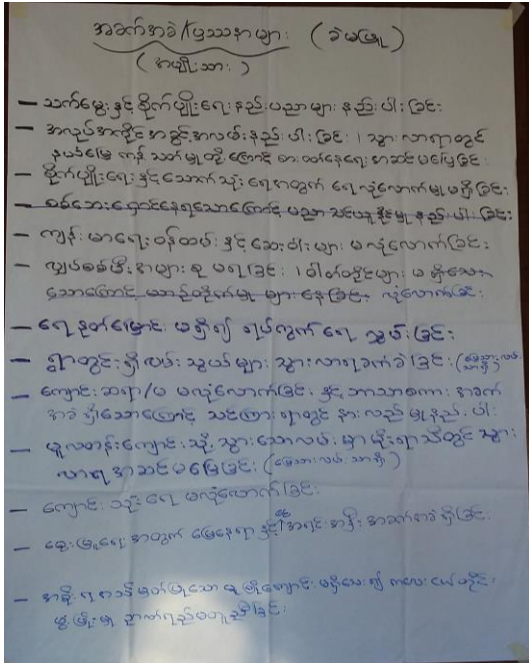 အခက်အခဲ/ပြဿနာများ (ခဲမဖြူ)
(အမျိုးသား)
– သက်မွေး နှင့် စိုက်ပျိုးရေး နည်းပညာများ နည်းပါးခြင်း
– အလုပ်အကိုင်အခွင့်အလမ်းနည်းပါးခြင်း ၊ သွားလာရာတွင်
နယ်မြေ ကန့်သတ်မှုတို့ကြောင့် စားဝတ်နေရေး အဆင်မပြေခြင်း
– စိုက်ပျိုးရေး နှင့် သောက်သုံးရေအတွက် ရေလုံလောက်မှု မရှိခြင်း
– စစ်ဘေးရှောင်နေရသောကြောင့် ပညာသင်ယူနိုင်မှု နည်းပါးခြင်း
– ကျန်းမာရေးဝန်ထမ်း နှင့် ဆေးဝါးများ မလုံလောက်ခြင်း
– လျှပ်စစ်မီးအားများ စု မရခြင်း ၊ ဝါတ်တိုင်များ မရှိသေး
သောကြောင့် ယာဉ်တိုက်မှုများနေခြင်း လုံလောက်ခြင်း
– ရေနုတ်မြောင်း မရှိ၍ ရပ်ကွက်ရေလွှမ်းခြင်း
– ရွာတွင်းရှိလမ်းသွယ်များ သွားလာရခက်ခဲခြင်း (မြေသားလမ်းသာရှိ)
– ကျောင်းဆရာ/မ မလုံလောက်ခြင်း နှင့် ဘာသာစကား အခက်
အခဲရှိသောကြောင့် သင်ကြားရာတွင် နားလည်မှုနည်းပါး
– မူလတန်းကျောင်းသို့ သွားသောလမ်းမှာ မိုးရာသီတွင် သွား
လာရ အဆင်မပြေခြင်း (မြေသားလမ်းသာရှိ)
– ကျောင်းသုံးရေ မလုံလောက်ခြင်း
– မွေးမြူရေးအတွက် မြေနေရာ နှင့် အရင်းအနှီး အခက်အခဲရှိခြင်း
– အစိုးရ အသိမှတ်ပြုသော မူကြိုကျောင်း မရှိသေး၍ ကလေးငယ်တိုင်း
ဖွံ့ဖြိုးမှု ဉာဏ်ရည်မတူညီခြင်း